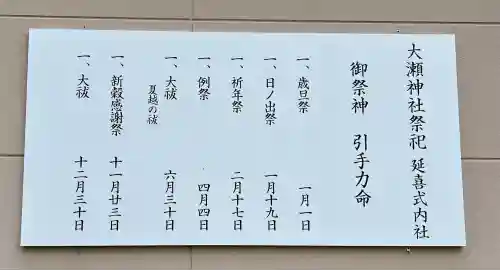 大瀬神社祭祀 延喜式内社
御祭神 引手力命
一、歳旦祭 一月一日
一、日ノ出祭 一月十九日
一、祈年祭 二月十七日
一、例祭 四月四日
一、大祓 六月三十日
夏越の祓
一、新穀感謝祭 十一月廿三日
一、大祓 十二月三十日